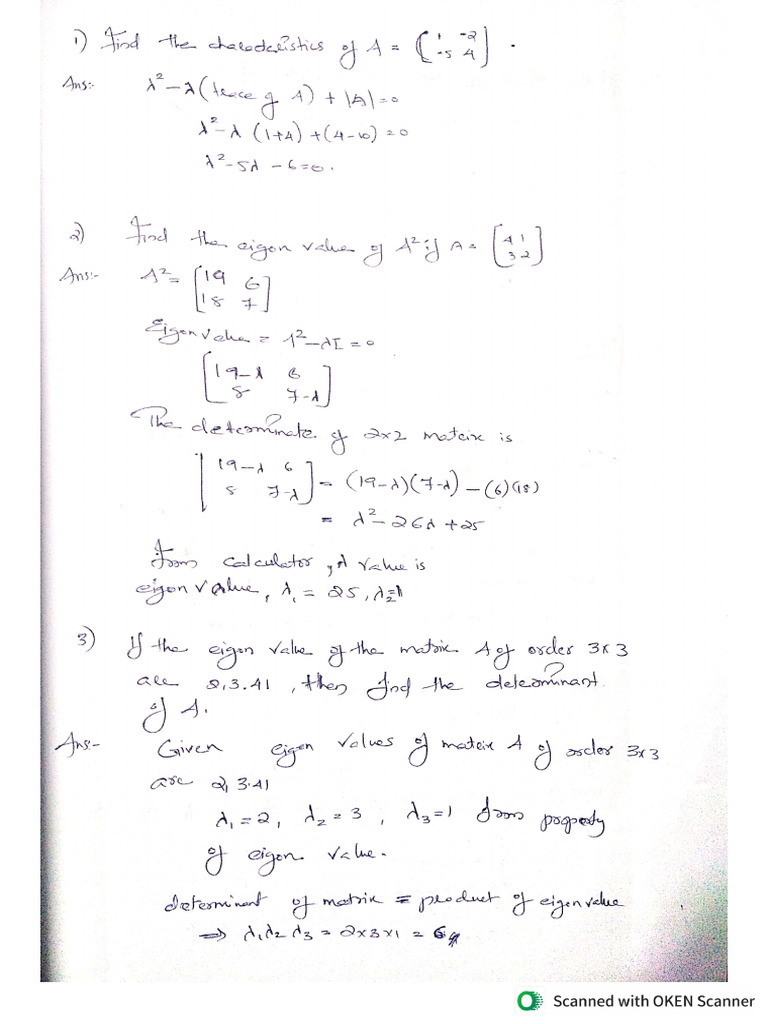 1) Find the characteristics of A = [1 -2
-5 4].
Ans:- λ² - λ (trace of A) + |A| = 0
λ² - λ (1+4) + (4-10) = 0
λ² - 5λ - 6 = 0.
2) Find the eigen value of A² if A = [4 1
3 2]
Ans:- A² = [19 6
18 7]
Eigen value = A² - λI = 0
[19-λ 6
8 7-λ]
The determinate of 2x2 matrix is
[19-λ 6
8 7-λ] = (19-λ)(7-λ) - (6)(18)
= λ² - 26λ + 25
From calculator, λ value is
eigen value, λ₁ = 25, λ₂=1
3) If the eigen value of the matrix A of order 3x3
are 2,3.41, then find the determinant
of A.
Ans:- Given eigen values of matrix A of order 3x3
are 2,3.41
λ₁ = 2, λ₂ = 3, λ₃ = 1 from property
of eigen value.
determinant of matrix = product of eigen value
⇒ λ₁ λ₂ λ₃ = 2x3x1 = 6
Scanned with OKEN Scanner